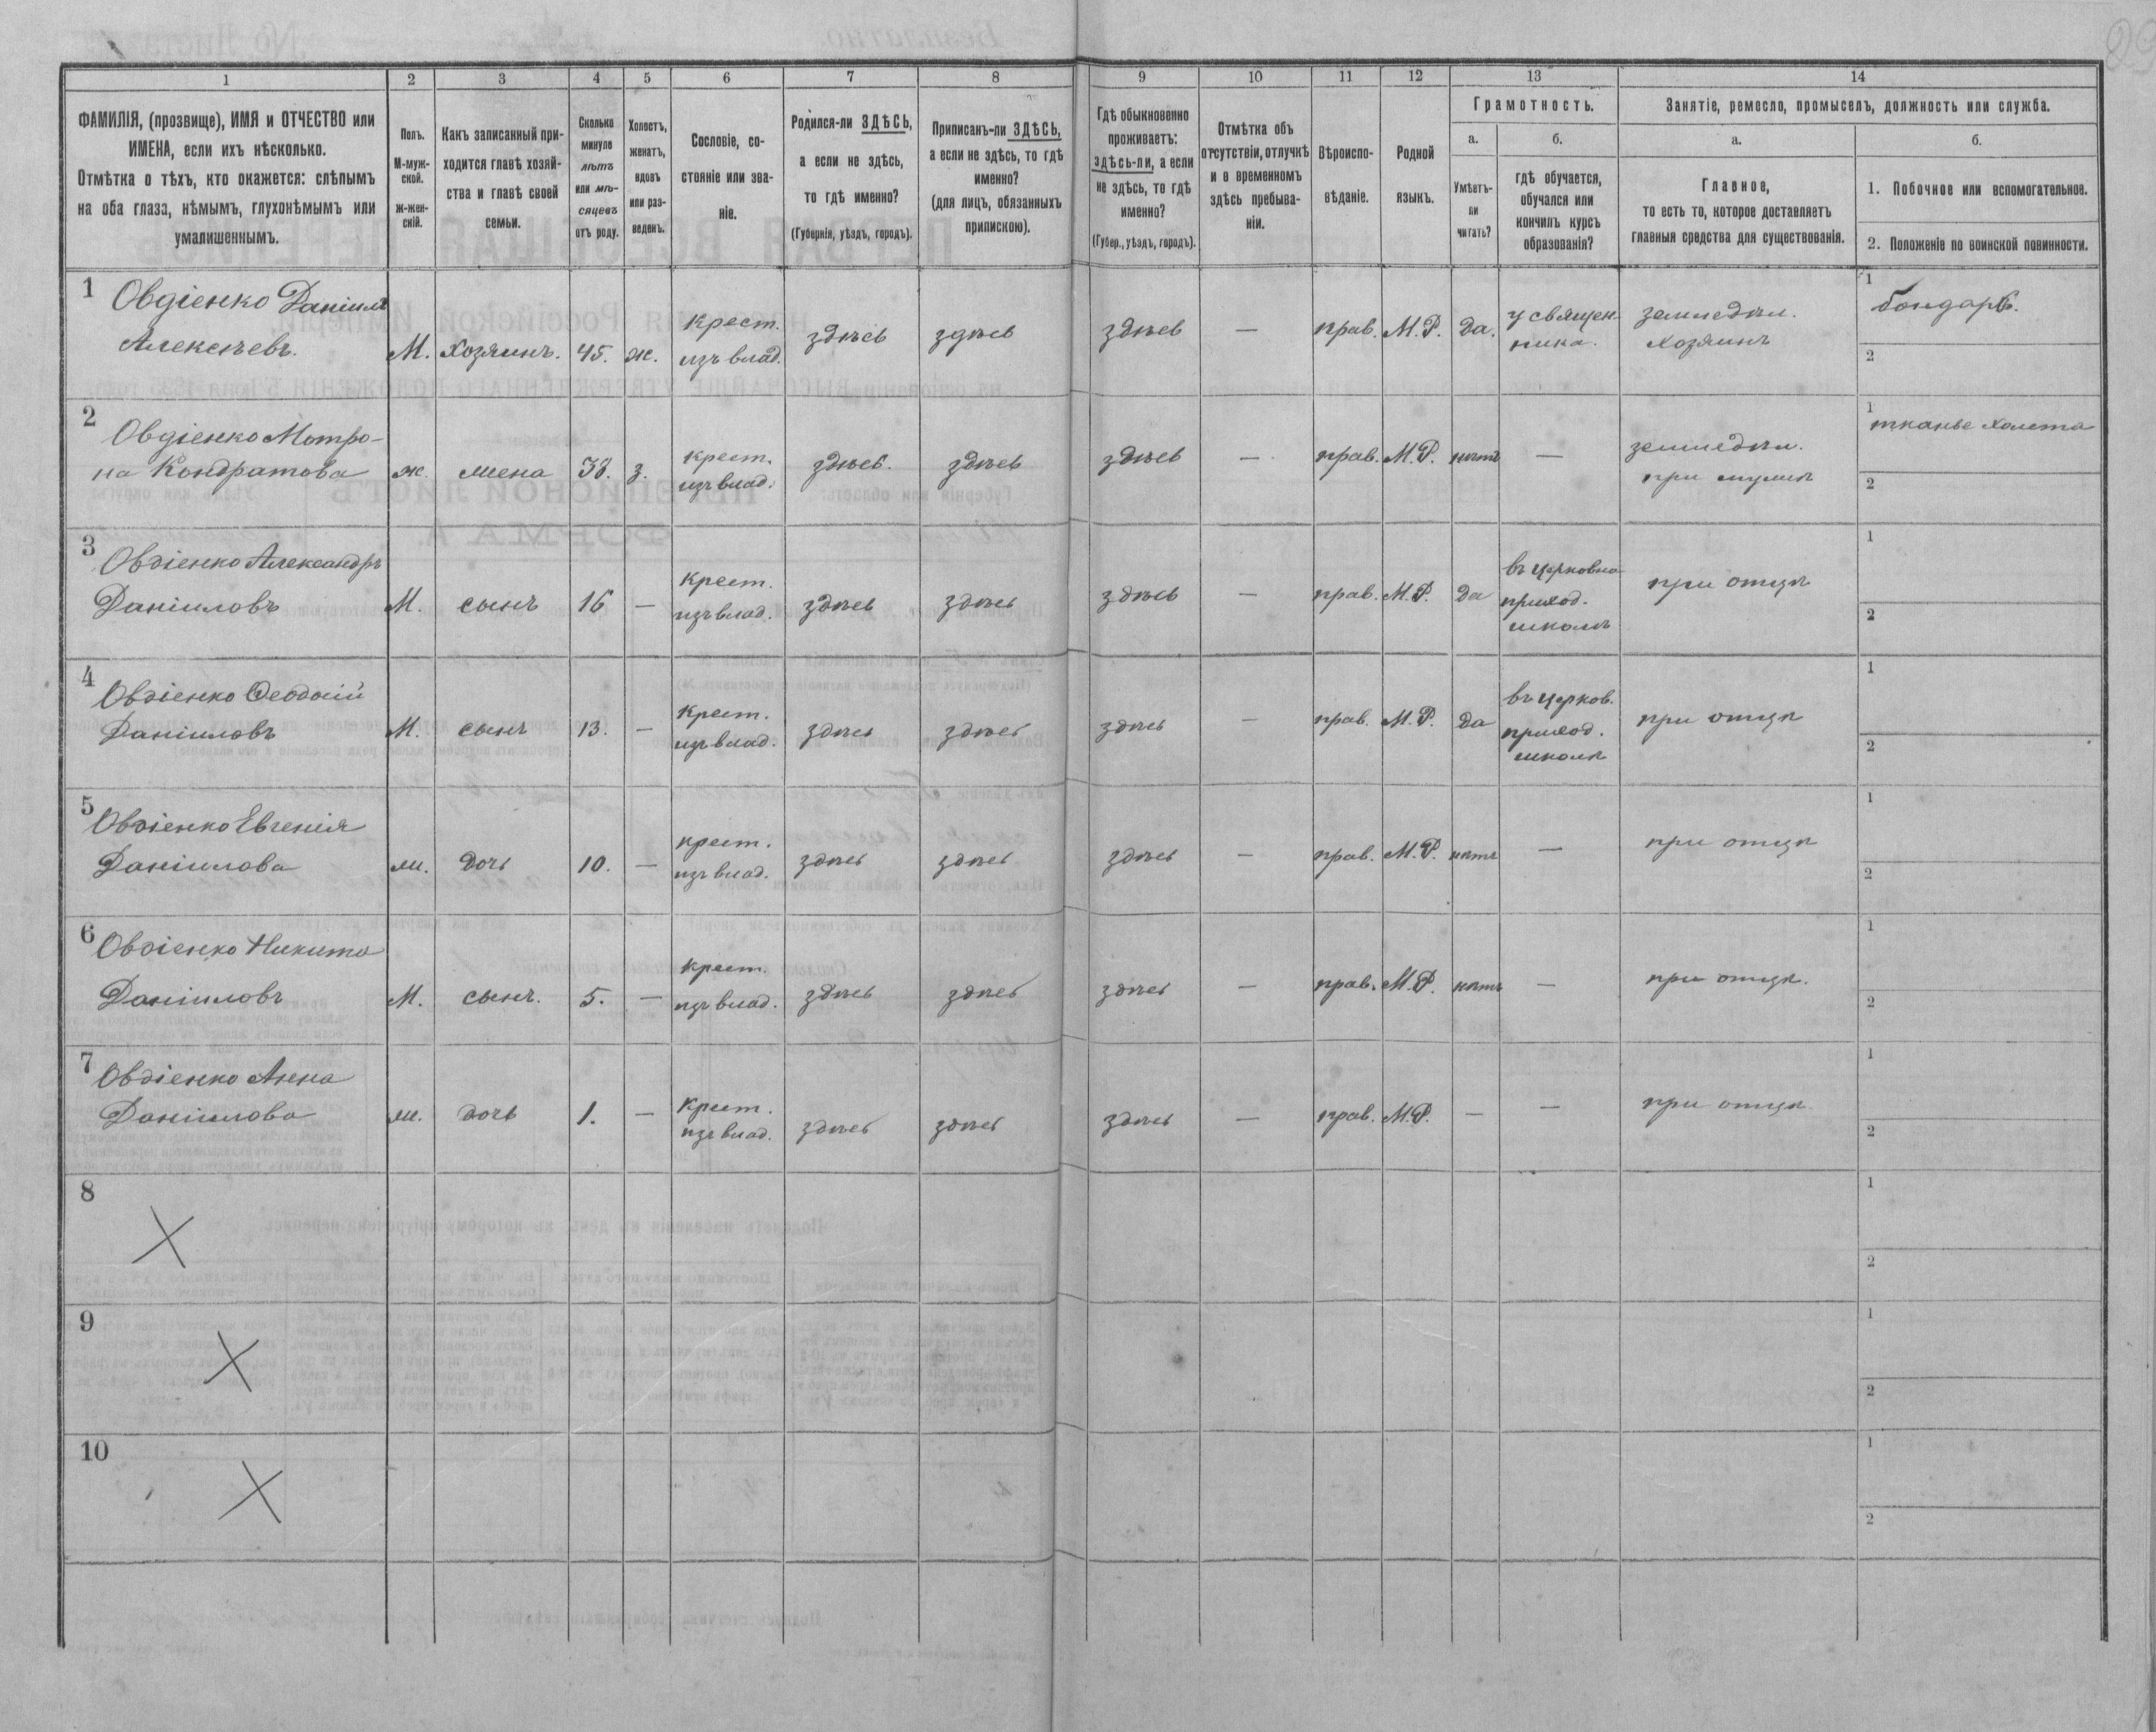 1 2 3 4 5 6 7 8 9 10 11 12 13 14
ФАМИЛІЯ, (прозвище), ИМЯ и ОТЧЕСТВО или
ИМЕНА, если ихъ нѣсколько.
Отмѣтка о тѣхъ, кто окажется: слѣпымъ
на оба глаза, нѣмымъ, глухонѣмымъ или
умалишеннымъ.
Полъ.
М-муж-
ской.
Ж-жен-
скій.
Какъ записанный при-
ходится главѣ хозяй-
ства и главѣ своей
семьи.
Сколько
минуло
лѣтъ
или мѣ-
сяцевъ
отъ роду.
Холостъ,
женатъ,
вдовъ
или раз-
веденъ.
Сословіе, со-
стояніе или зва-
ніе.
Родился-ли ЗДѢСЬ,
а если не здѣсь,
то гдѣ именно?
(Губернія, уѣздъ, городъ).
Приписанъ-ли ЗДѢСЬ,
а если не здѣсь, то гдѣ
именно?
(для лицъ, обязанныхъ
припискою).
Гдѣ обыкновенно
проживаетъ:
здѣсь-ли, а если
не здѣсь, то гдѣ
именно?
(Губер., уѣздъ, городъ).
Отмѣтка объ
отсутствіи, отлучкѣ
и о временномъ
здѣсь пребыва-
ніи.
Вѣроиспо-
вѣданіе.
Родной
языкъ.
Грамотность.
а.
Умѣетъ-
ли
читать?
б.
гдѣ обучается,
обучался или
кончилъ курсъ
образованія?
Занятіе, ремесло, промыселъ, должность или служба.
а.
Главное,
то есть то, которое доставляетъ
главныя средства для существованія.
б.
1. Побочное или вспомогательное.
2. Положеніе по воинской повинности.
1 Овдіенко Даніилъ
Алексѣевъ.
М. Хозяинъ. 45. ж.
крест.
изъ влад.
здѣсь здѣсь здѣсь — прав. М. Р. да.
у священ-
ника.
земледѣл.
хозяинъ
1 бондарь.
2
2 Овдіенко Матро-
на Кондратова
ж. жена 38. з.
крест.
изъ влад.
здѣсь. здѣсь здѣсь — прав. М. Р. нѣтъ —
земледѣл.
при мужѣ
1 тканье холста
2
3 Овдіенко Александръ
Даніиловъ
М. сынъ 16 —
крест.
изъ влад.
здѣсь здѣсь здѣсь — прав. М. Р. да
въ церковно-
приход.
школѣ
при отцѣ
1
2
4 Овдіенко Ѳеодосій
Даніиловъ
М. сынъ 13. —
крест.
изъ влад.
здѣсь здѣсь здѣсь — прав. М. Р. да
въ церков.
приход.
школѣ
при отцѣ
1
2
5 Овдіенко Евгенія
Даніилова
ж. дочь 10. —
крест.
изъ влад.
здѣсь здѣсь здѣсь — прав. М. Р. нѣтъ —
при отцѣ
1
2
6 Овдіенко Никита
Даніиловъ
М. сынъ. 5. —
крест.
изъ влад.
здѣсь здѣсь здѣсь — прав. М. Р. нѣтъ —
при отцѣ.
1
2
7 Овдіенко Анна
Даніилова
ж. дочь 1. —
крест.
изъ влад.
здѣсь здѣсь здѣсь — прав. М. Р. — —
при отцѣ
1
2
8
1
2
9
1
2
10
1
2